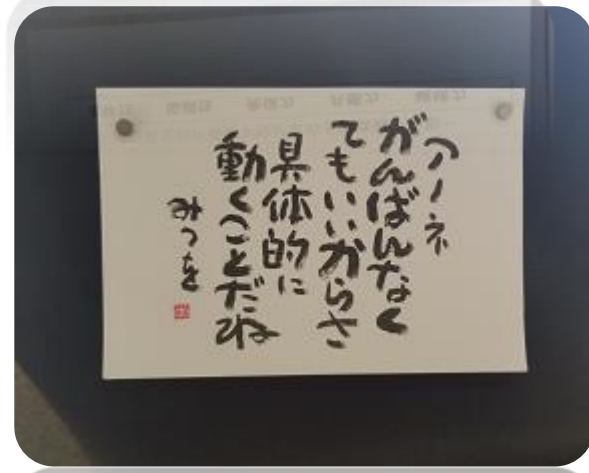 アノネ
がんばんなく
てもいいからさ
具体的に
動くことだね
みつを